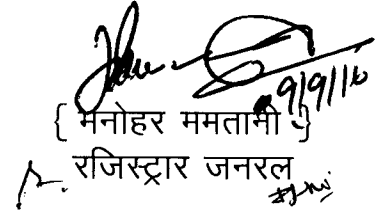 9/9/16
{ मनोहर ममतानी }
रजिस्ट्रार जनरल